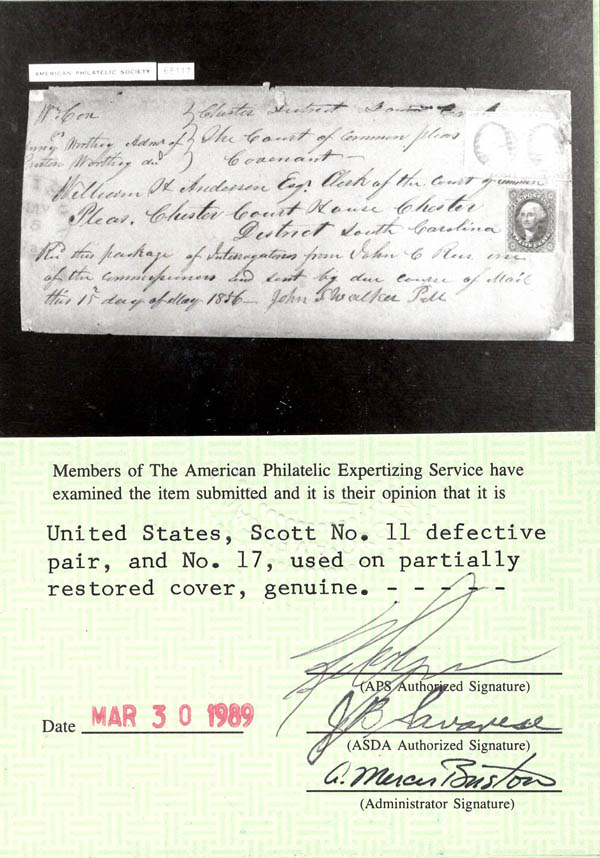 AMERICAN PHILATELIC SOCIETY
Wm Cox } Chester District
Worthy Admr of } The Court of Common pleas
Worthy decd } Covenant —
William H Anderson Esqr Clerk of the Court of Common
Pleas. Chester Court House Chester
District South Carolina
Rec this package of Interogatores from John C one
of the Commissioners and sent by due course of Mail
this 15 day of May 1856 — John S Walker P.M
Members of The American Philatelic Expertizing Service have
examined the item submitted and it is their opinion that it is
United States, Scott No. 11 defective
pair, and No. 17, used on partially
restored cover, genuine. - - - - -
(APS Authorized Signature)
Date MAR 30 1989
J B Savarese
(ASDA Authorized Signature)
A. Mercer Bristow
(Administrator Signature)